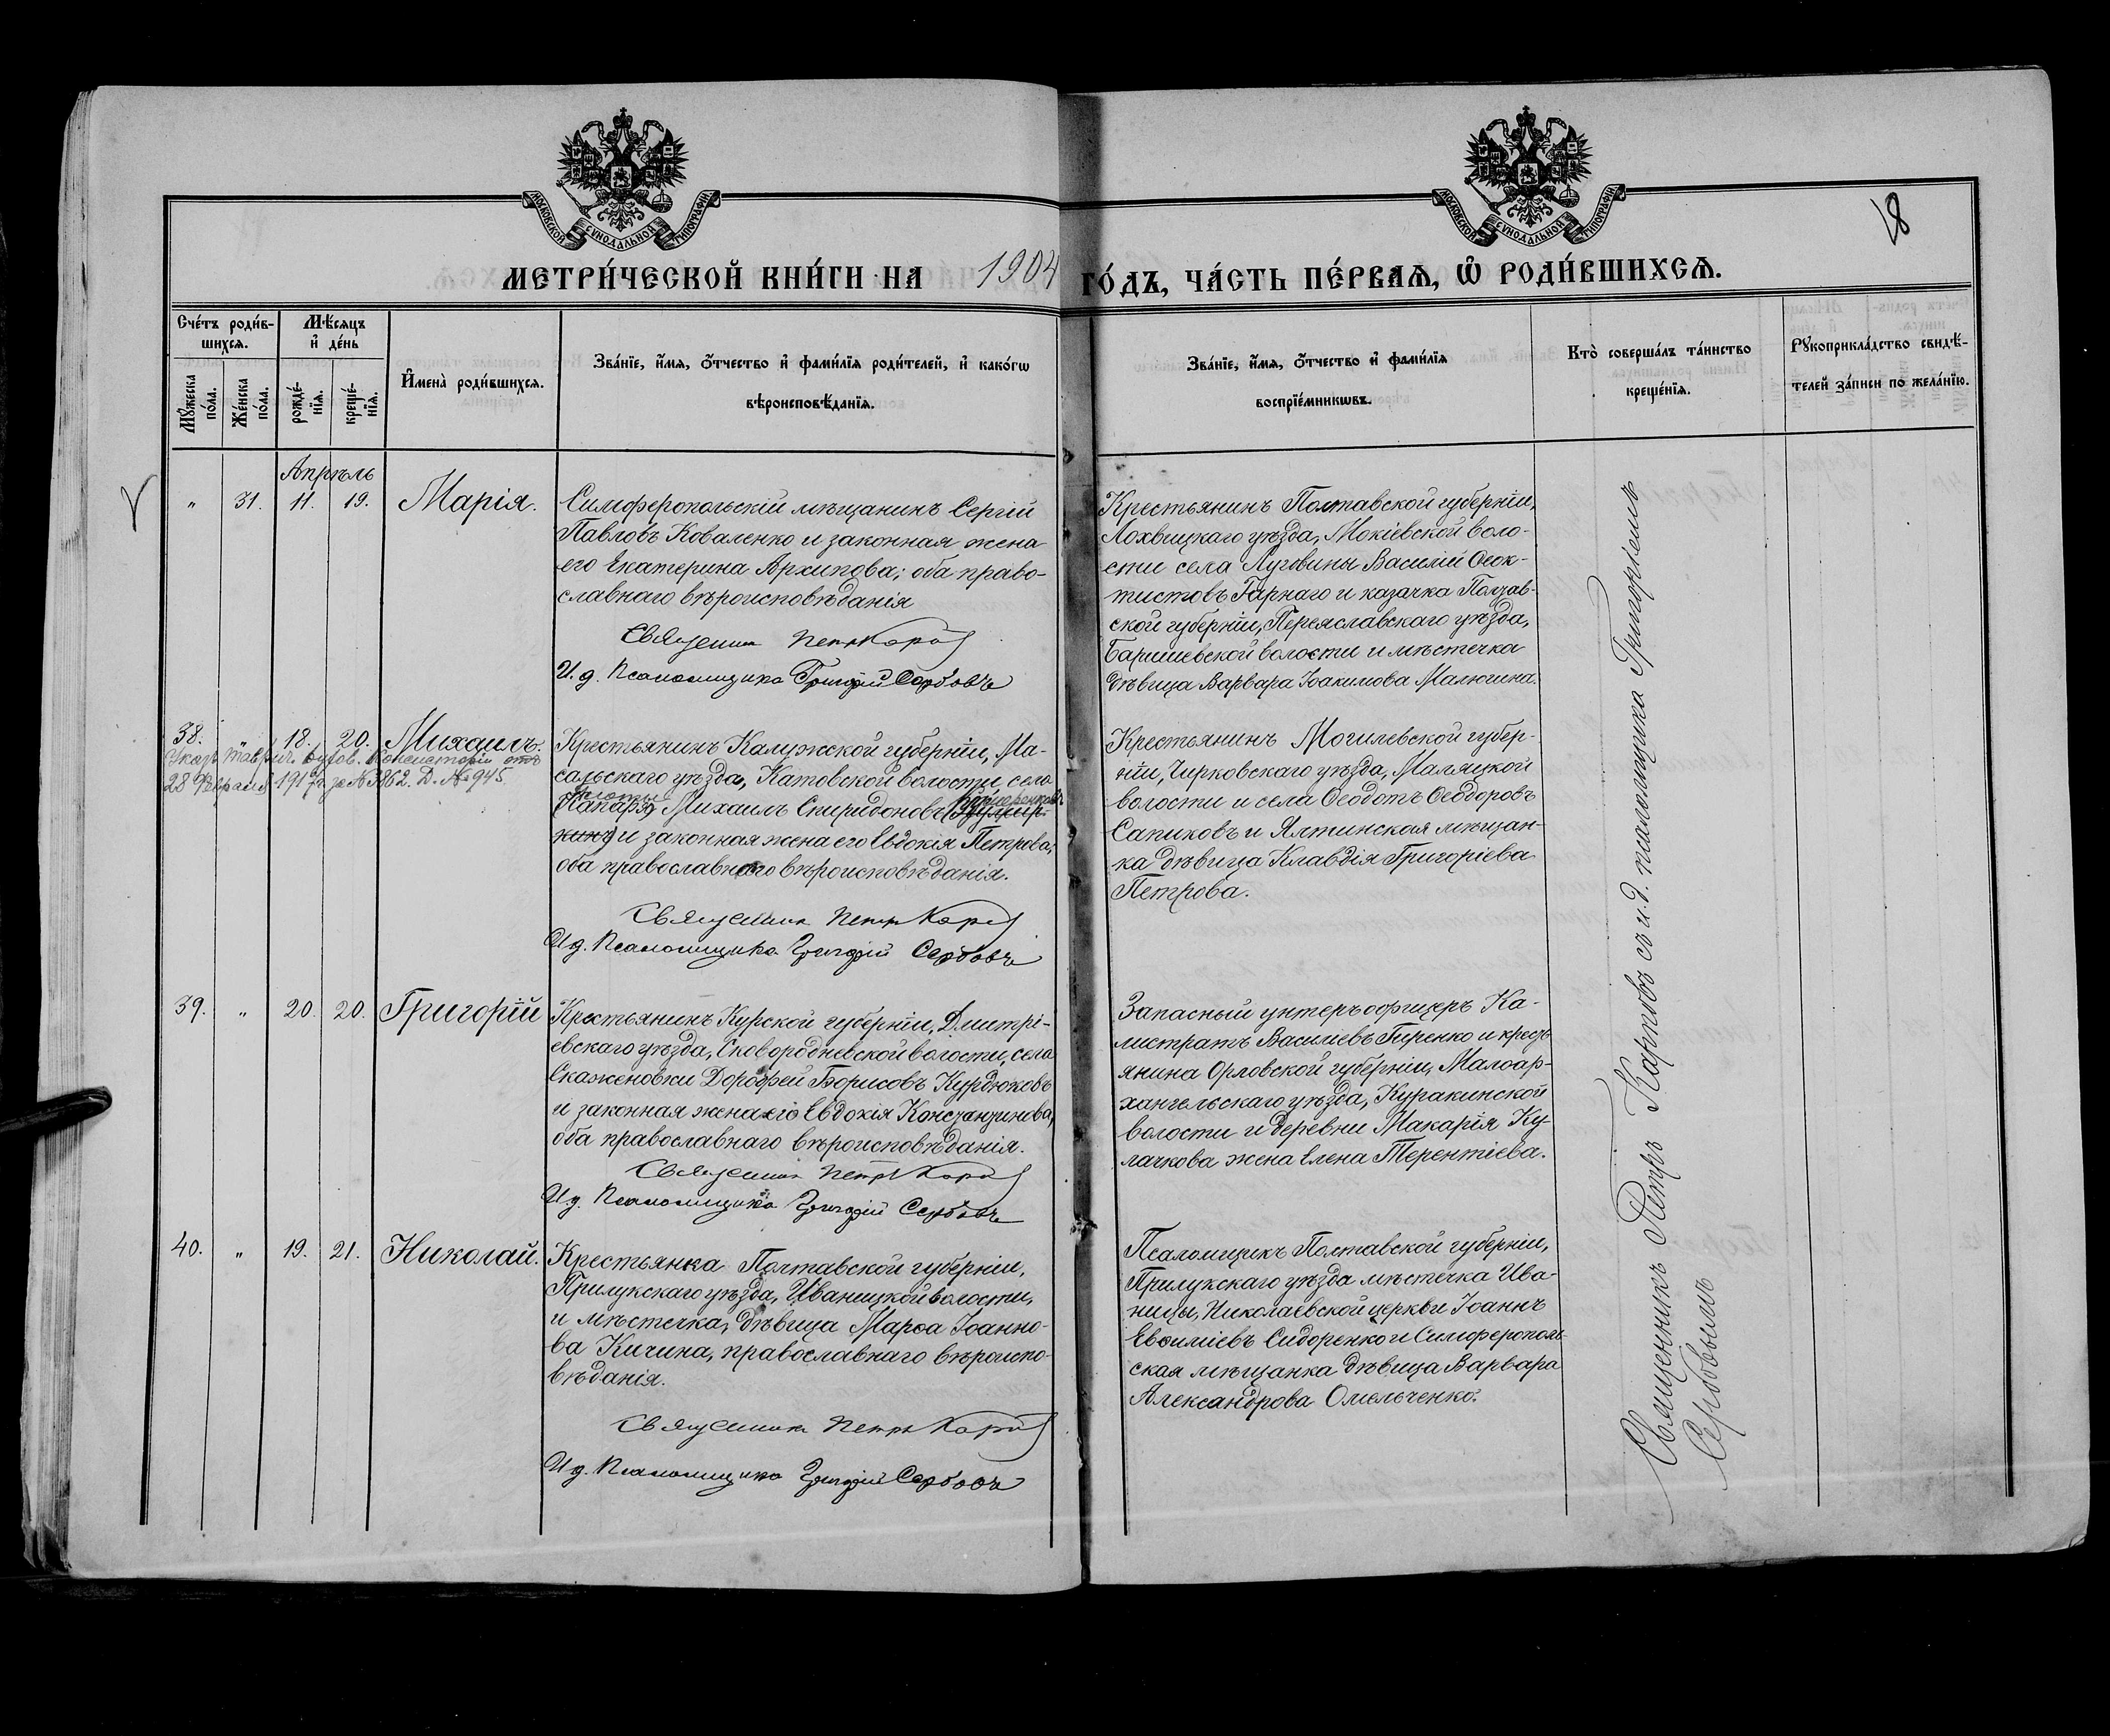 МОСКОВСКОЙ СУНОДАЛЬНОЙ ТИПОГРАФИИ
МОСКОВСКОЙ СУНОДАЛЬНОЙ ТИПОГРАФИИ
18
МЕТРИ́ЧЕСКОЙ КНИ́ГИ НА 1904 ГО́ДЪ, ЧА́СТЬ ПЕ́РВАѦ, Ѽ РОДИ́ВШИХСѦ.
Сче́тъ роди́в-
шихсѧ.
Мꙋ́жеска по́ла.
Же́нска по́ла.
Мѣ́сяцъ
и҆ де́нь
рожде́-
нїѧ.
креще́-
нїѧ.
И҆мена̀ роди́вшихсѧ.
Зва́нїе, и҆́мѧ, ѻ҆́тчество и҆ фами́лїѧ роди́телей, и҆ како́гѡ
вѣроисповѣ́данїѧ.
Зва́нїе, и҆́мѧ, ѻ҆́тчество и҆ фами́лїѧ
воспрїе́мникѡвъ.
Кто̀ соверша́лъ та́инство
креще́нїѧ.
Рꙋкоприкла́дство свидѣ́-
телей за́писи по жела́нїю.
Апрѣль
" 31. 11. 19. Марія.
Симферопольскій мѣщанинъ Сергій
Павловъ Коваленко и законная жена
его Екатерина Архипова; оба право-
славнаго вѣроисповѣданія
Священникъ Петръ
И. д. Псаломщика Григорій Сербовъ
Крестьянинъ Полтавской губерніи,
Лохвицкаго уѣзда, Мокіевской воло-
сти села Луговины Василій Ѳеок-
тистовъ Гарнаго и казачка Полтав-
ской губерніи, Переяславскаго уѣзда,
Баришевской волости и мѣстечка
дѣвица Варвара Іоакимова Малюгина.
38. " 18. 20. Михаилъ.
Указ. Таврич. Духов. Консисторіи отъ
28 Февраля 1917 г. за № 3862. Д. № 945
Крестьянинъ Калужской губерніи, Ма-
сальскаго уѣзда, Катовской волости, села
Михаилъ Спиридоновъ
и законная жена его Евдокія Петрова;
оба православнаго вѣроисповѣданія.
Священникъ Петръ
И. д. Псаломщика Григорій Сербовъ
Крестьянинъ Могилевской губер-
ніи, Чирковскаго уѣзда, Маляцкой
волости и села Ѳеодотъ Ѳеодоровъ
Сапиковъ и Ялтинская мѣщан-
ка дѣвица Клавдія Григоріева
Петрова.
39. " 20. 20. Григорій
Крестьянинъ Курской губерніи, Дмитрі-
евскаго уѣзда, Сковородневской волости, села
Скаженовки Дорофей Борисовъ Курдюковъ
и законная жена его Евдокія Константинова,
оба православнаго вѣроисповѣданія.
Священникъ Петръ
И. д. Псаломщика Григорій Сербовъ
Запасный унтеръ офицеръ Ка-
листратъ Василіевъ Гиренко и кресть
янина Орловской губерніи, Малоар-
хангельскаго уѣзда, Куракинской
волости и деревни Макарія Ку-
лачкова жена Елена Терентіева.
40. " 19. 21. Николай.
Крестьянка Полтавской губерніи,
Прилукскаго уѣзда, Иваницкой волости,
и мѣстечка, дѣвица Марѳа Іоанно-
ва Кичина, православнаго вѣроиспо-
вѣданія.
Священникъ Петръ
И. д. Псаломщика Григорій Сербовъ
Псаломщикъ Полтавской губерніи,
Прилукскаго уѣзда мѣстечка Ива-
ницы, Николаевской церкви Іоаннъ
Евѳиміевъ Сидоренко и Симферополь-
ская мѣщанка дѣвица Варвара
Александрова Омельченко.
Священникъ Петръ Карповъ съ и. д. псаломщика Григоріемъ
Сербовымъ